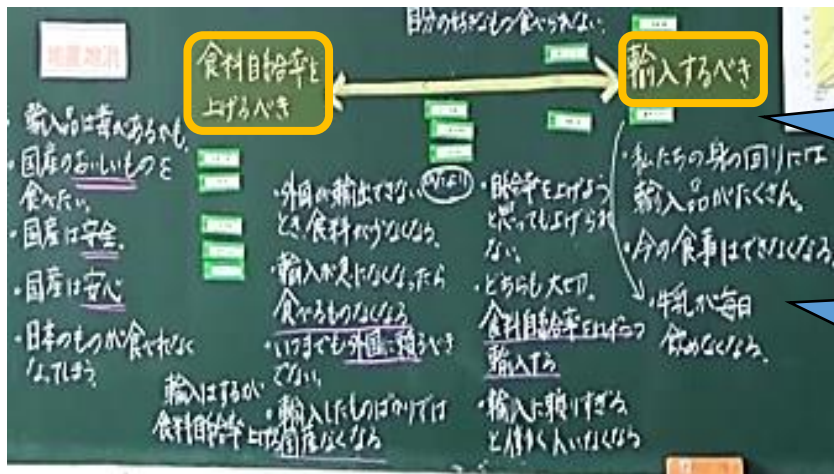 地産地消
自分の好きなもの食べられない。
食料自給率を
上げるべき
輸入するべき
・輸入品は毒があるかも。
・国産のおいしいものを
食べたい。
・国産は安全。
・国産は安心
・日本のものが食べれなく
なってしまう。
輸入はするが
食料自給率上げる
・外国が輸出できない
とき、食料が少なくなる。
・輸入が急になくなったら
食べるものなくなる
・いつまでも外国に頼るべき
でない。
・輸入したものばかりでは
国産なくなる
・自給率を上げよう
と思ってもよげられ
ない。
・どちらも大切。
食料自給率を上げつつ
輸入する
・輸入に頼りすぎる
と働く人いなくなる
・私たちの身の回りには
輸入品がたくさん。
・今の食事はできなくなる。
・牛乳が毎日
飲めなくなる。